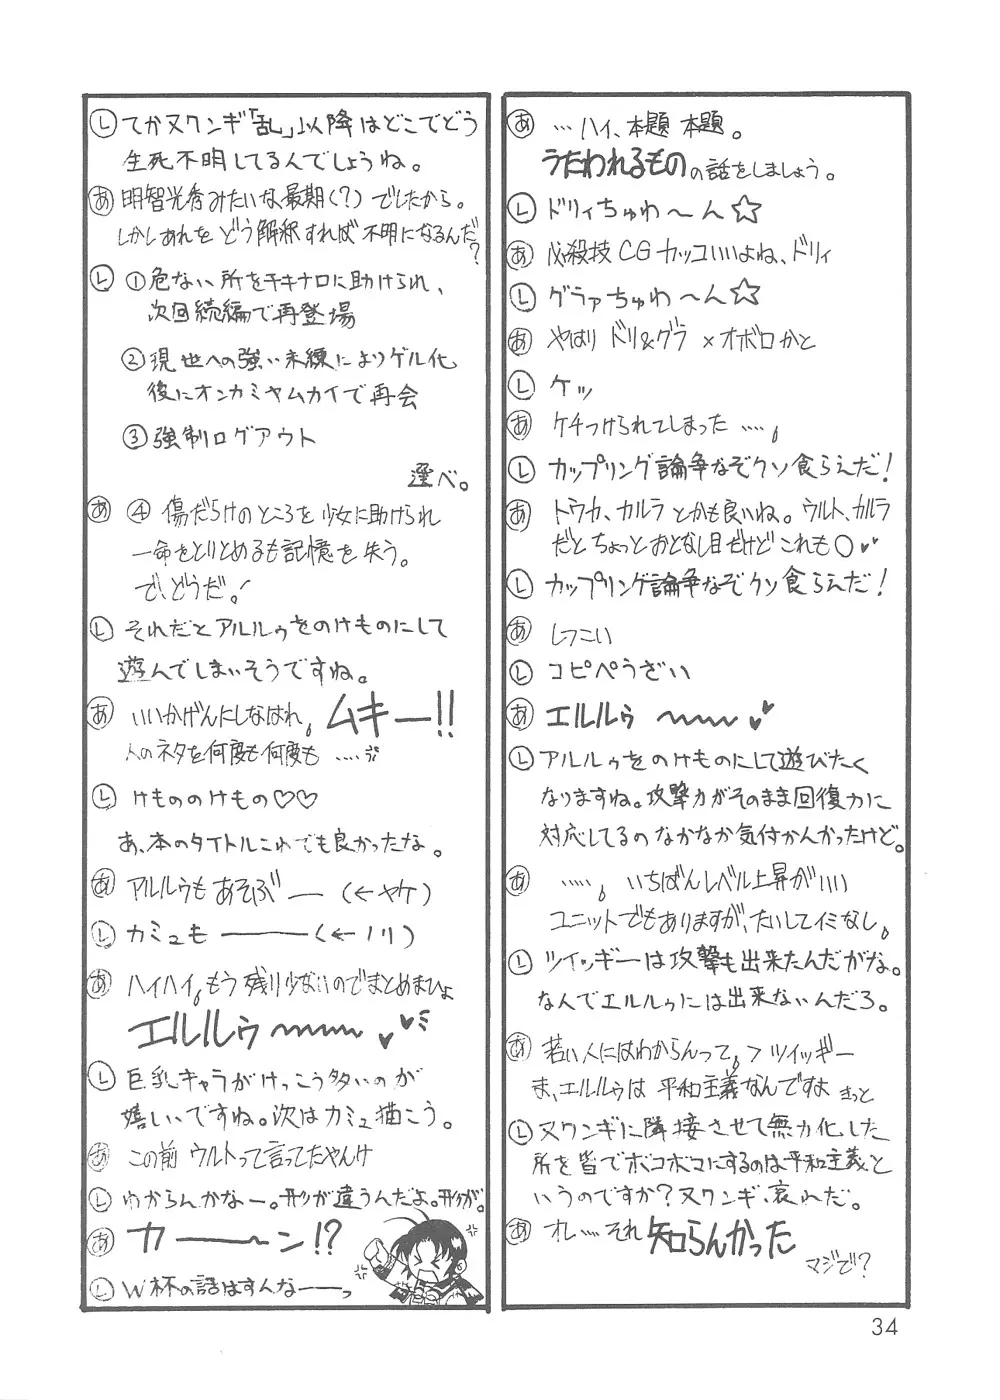 Ⓛ てかヌワンギ「乱」以降はどこでどう
生死不明してるんでしょうね。
あ 明智光秀みたいな最期(?)でしたから。
しかしあれをどう解釈すれば不明になるんだ?
Ⓛ ①危ない所をチキナロに助けられ、
次回続編で再登場
②現世への強い未練によりゲル化
後にオンカミヤムカイで再会
③強制ログアウト
選べ。
あ ④傷だらけのところを少女に助けられ
一命をとりとめるも記憶を失う。
で、どうだ!
Ⓛ それだとアルルゥをのけものにして
遊んでしまいそうですね。
あ いいかげんにしなはれ。ムキー!!
人のネタを何度も何度も……
Ⓛ けもののけもの♡♡
あ、本のタイトルこれでも良かったな。
あ アルルゥもあそぶ― (←ヤケ)
Ⓛ カミュも―――(←ノリ)
あ ハイハイ。もう残り少ないのでまとめまひょ
エルルゥ〜〜〜♥♥
Ⓛ 巨乳キャラがけっこう多いのが
嬉しいですね。次はカミュ描こう。
あ この前ウルトって言ってたやんけ
Ⓛ わからんかなー。形が違うんだよ。形が。
あ カ――〜ン!?
Ⓛ W杯の話はすんなーーっ
あ …ハイ、本題本題。
うたわれるものの話をしましょう。
Ⓛ ドリィちゅわ〜ん☆
あ 必殺技CGカッコいいよね、ドリィ
Ⓛ グラァちゅわ〜ん☆
あ やはりドリ&グラ×オボロかと
Ⓛ ケッ
あ ケチつけられてしまった……。
Ⓛ カップリング論争なぞクソ食らえだ!
あ トウカ、カルラとかも良いね。ウルト、カルラ
だとちょっとおとなし目だけどこれも○♥♥
Ⓛ カップリング論争なぞクソ食らえだ!
あ しつこい
Ⓛ コピペうざい
あ エルルゥ 〜〜〜♥♥
Ⓛ アルルゥをのけものにして遊びたく
なりますね。攻撃力がそのまま回復力に
対応してるのなかなか気付かんかったけど。
あ ……。いちばんレベル上昇がいい
ユニットでもありますが、たいしてイミなし。
Ⓛ ツイッギーは攻撃も出来たんだがな。
なんでエルルゥには出来ないんだろ。
あ 若い人にはわからんって。>ツイッギー
ま、エルルゥは平和主義なんですよきっと
Ⓛ ヌワンギに隣接させて無力化した
所を皆でボコボコにするのは平和主義と
いうのですか?ヌワンギ、哀れだ。
あ オレ…それ知らんかった
マジで?
34